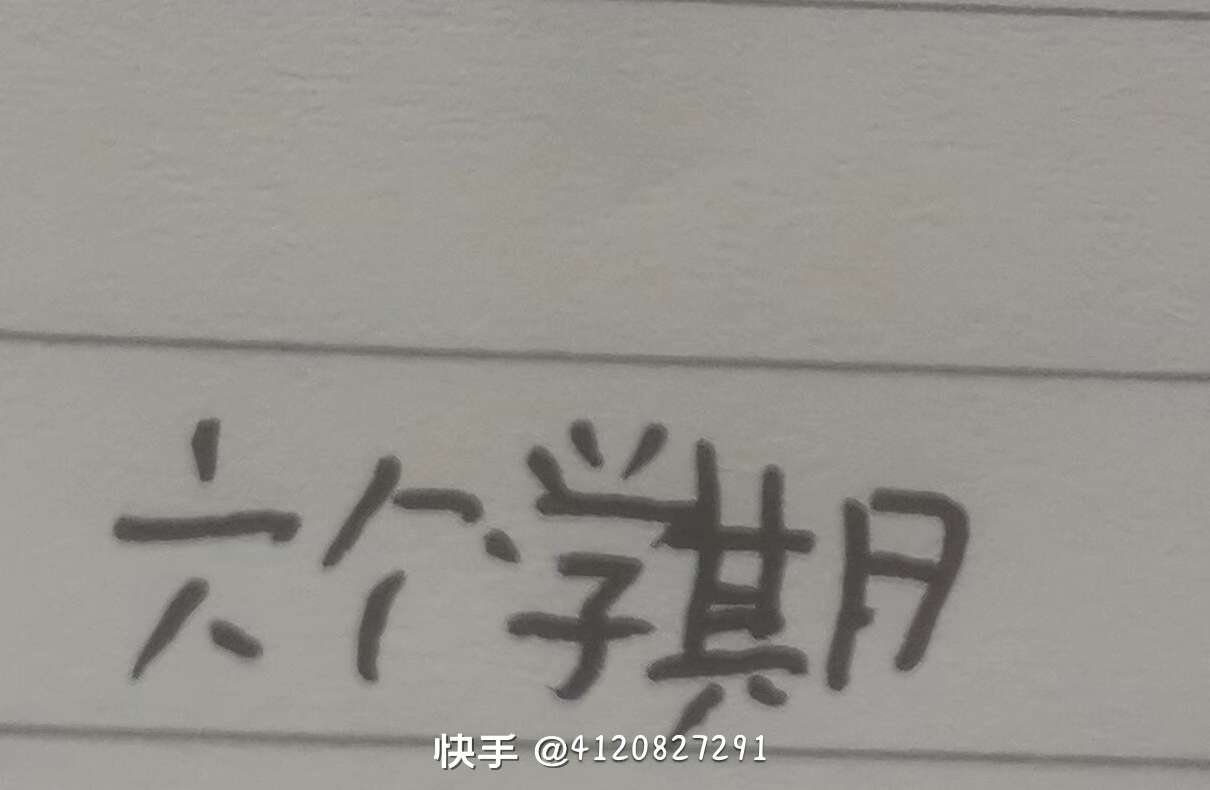 六个学期
快手 @4120827291